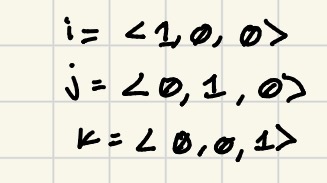 i = <1, 0, 0>
j = <0, 1, 0>
k = <0, 0, 1>